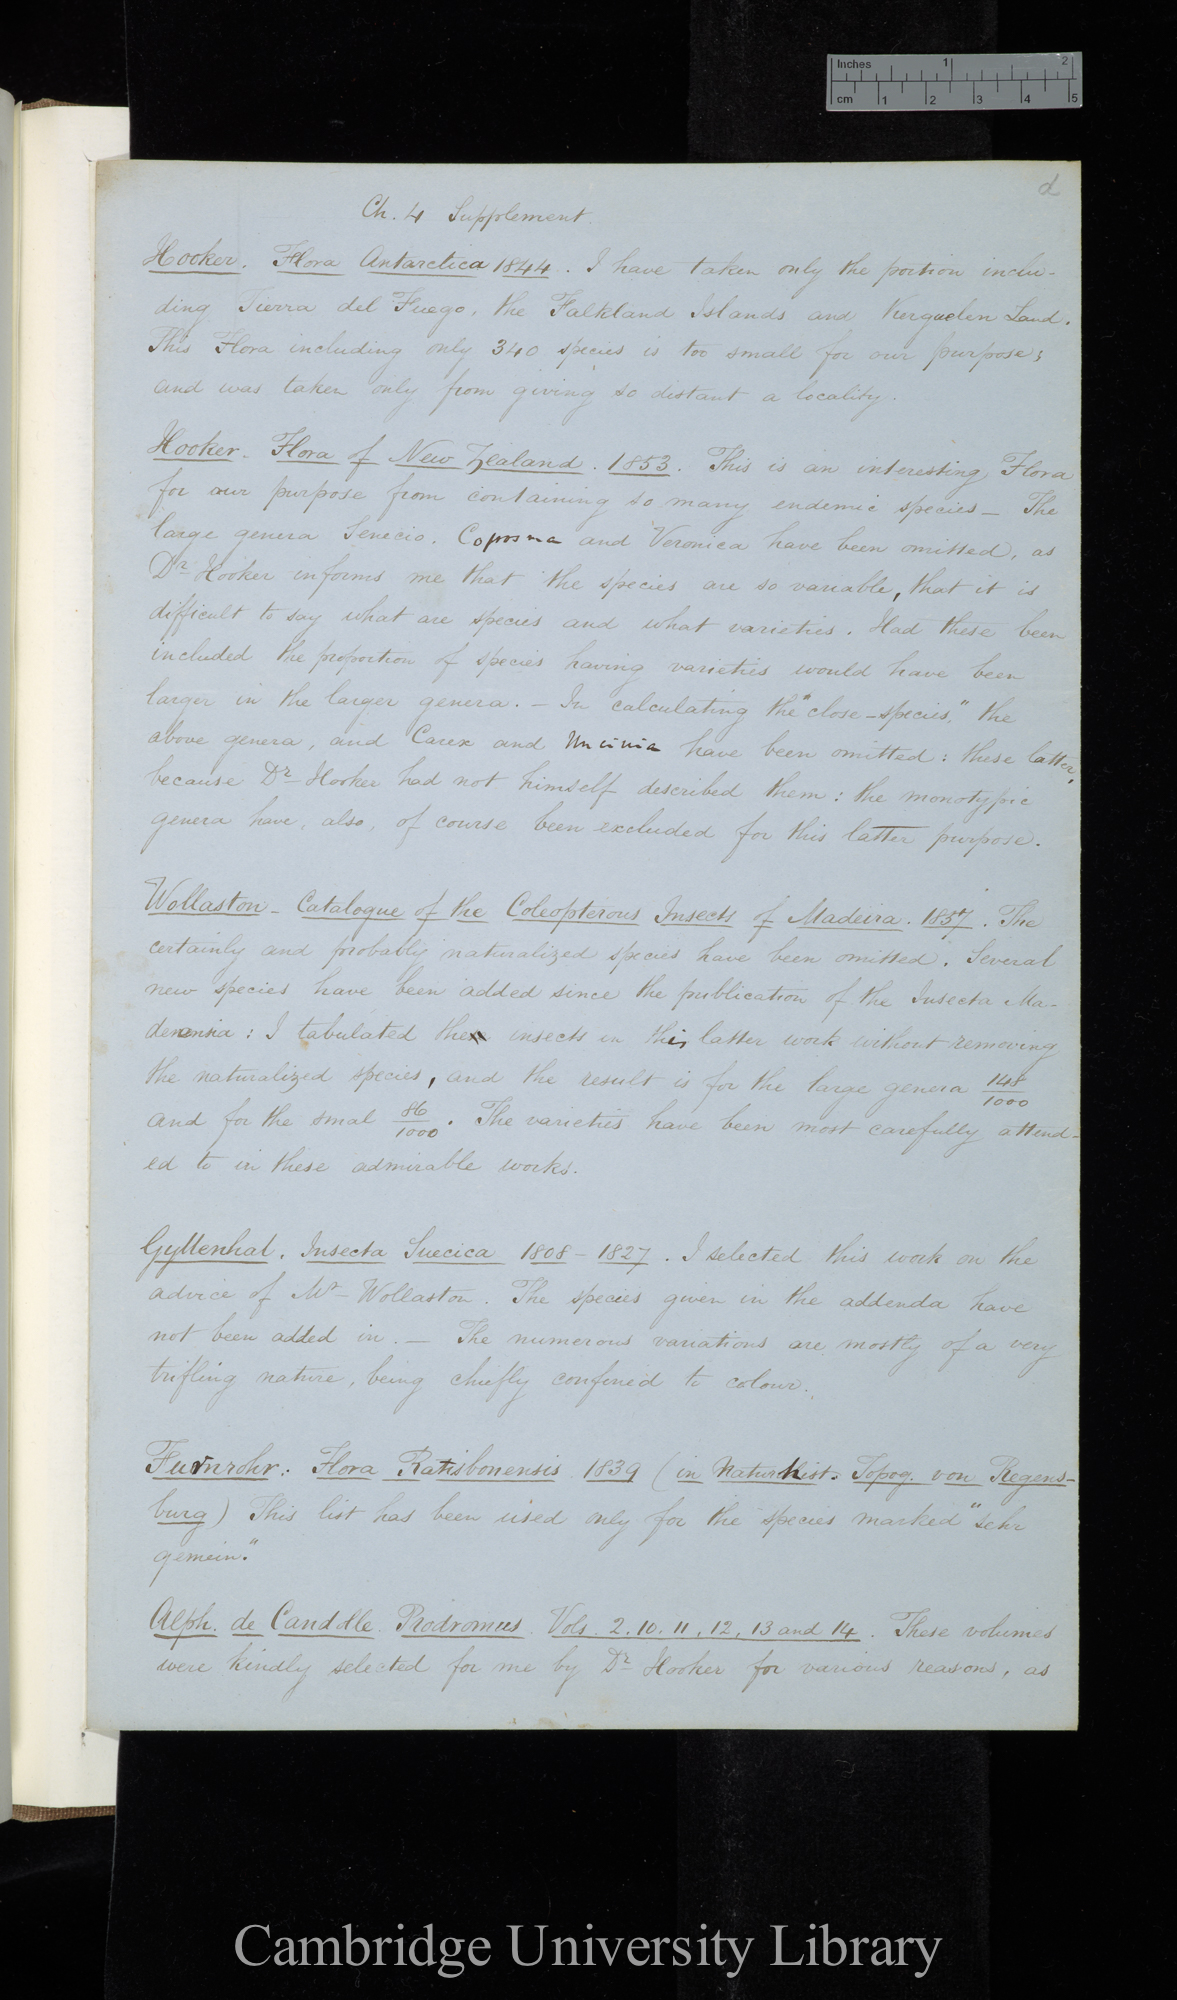 Inches 1 2
cm 1 2 3 4 5
d
Ch. 4 Supplement.
Hooker. Flora Antarctica 1844. I have taken only the portion inclu-
ding Tierra del Fuego, the Falkland Islands and Kerguelen Land.
This Flora including only 340 species is too small for our purpose;
and was taken only from giving so distant a locality.
Hooker. Flora of New Zealand. 1853. This is an interesting Flora
for our purpose from containing so many endemic species — The
large genera Senecio, Coprosma and Veronica have been omitted, as
Dr Hooker informs me that the species are so variable, that it is
difficult to say what are species and what varieties. Had these been
included the proportion of species having varieties would have been
larger in the larger genera. — In calculating the "close-species," the
above genera, and Carex and Uncinia have been omitted: these latter,
because Dr Hooker had not himself described them: the monotypic
genera have, also, of course been excluded for this latter purpose.
Wollaston — Catalogue of the Coleopterous Insects of Madeira. 1857. The
certainly and probably naturalized species have been omitted. Several
new species have been added since the publication of the Insecta Ma-
derensia: I tabulated the insects in this latter work without removing
the naturalized species, and the result is for the large genera 148/1000
and for the smal 86/1000. The varieties have been most carefully attend-
ed to in these admirable works.
Gyllenhal. Insecta Suecica 1808 - 1827. I selected this work on the
advice of Mr Wollaston. The species given in the addenda have
not been added in. — The numerous variations are mostly of a very
trifling nature, being chiefly confined to colour.
Furnrohr: Flora Ratisbonensis 1839 (in Naturhist. Topog. von Regens-
burg) This list has been used only for the species marked "sehr
gemein."
Alph. de Candolle Prodromus Vols. 2. 10. 11, 12, 13 and 14. These volumes
were kindly selected for me by Dr Hooker for various reasons, as
Cambridge University Library